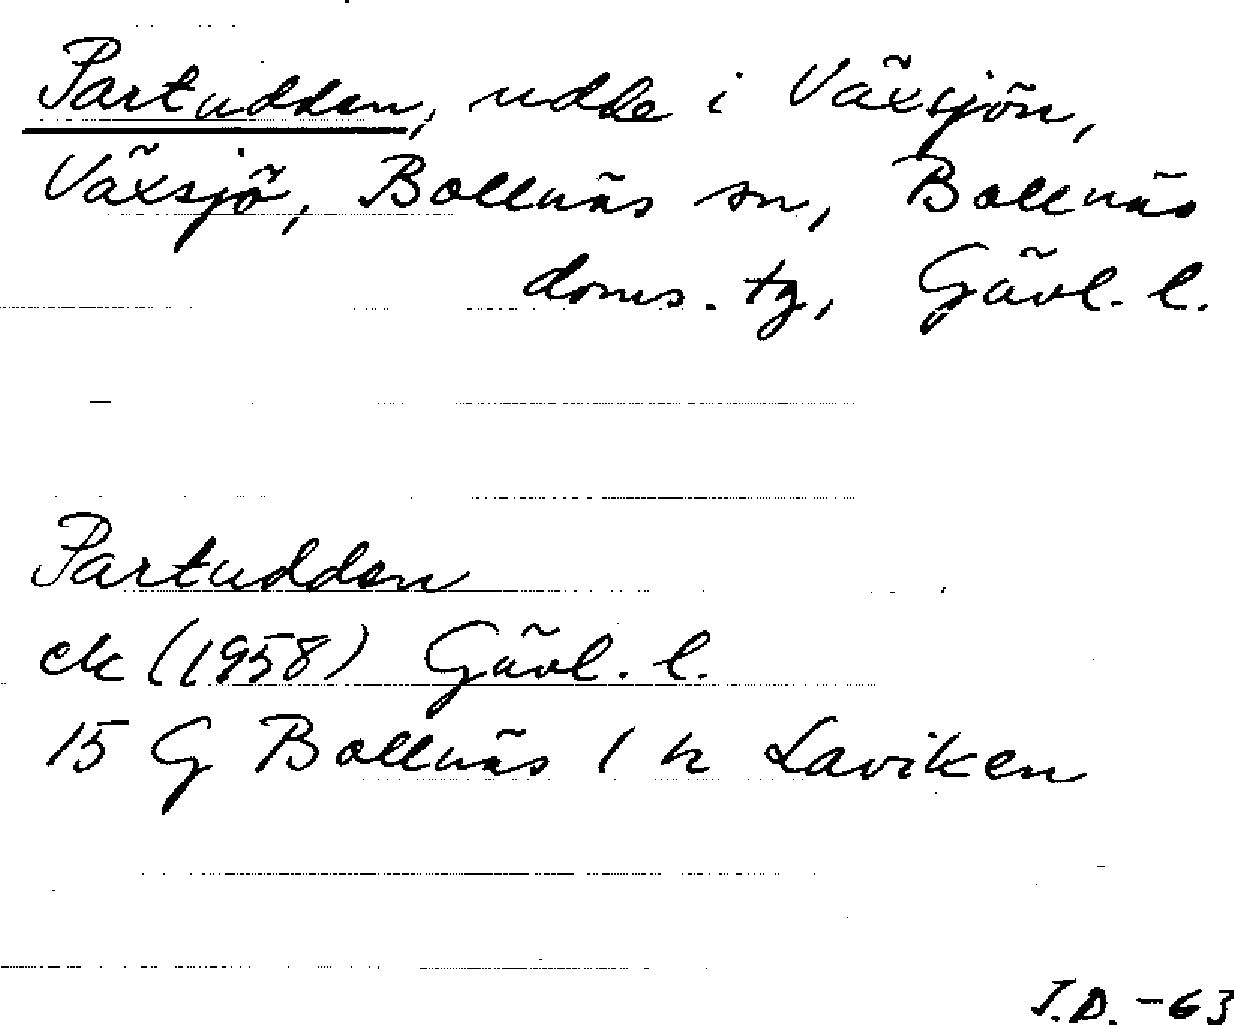 Partudden, udde i Växsjön,
Växsjö, Bollnäs sn, Bollnäs
doms. tg, Gävl. l.
Partudden
ek (1958) Gävl. l.
15 G Bollnäs 1 n Laviken
I.D. -63